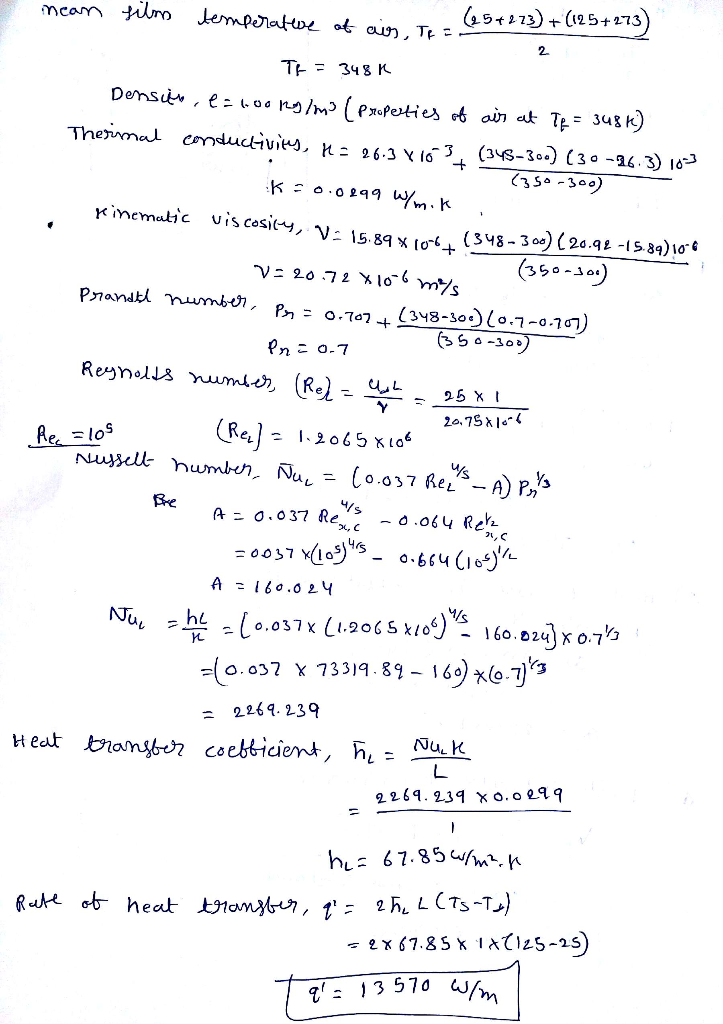 mean film temperature of air, Tf = (25+273)+(125+273) / 2
Tf = 348 K
Density, ρ = 1.00 kg/m³ (properties of air at Tf = 348 K)
Thermal conductivity, K = 26.3 × 10⁻³ + (348-300) (30-26.3) 10⁻³ / (350-300)
K = 0.0299 W/m.K
Kinematic viscosity, ν = 15.89 × 10⁻⁶ + (348-300) (20.92-15.89) 10⁻⁶ / (350-300)
ν = 20.72 × 10⁻⁶ m²/s
Prandtl number, Pr = 0.707 + (348-300) (0.7-0.707) / (350-300)
Pr = 0.7
Reynolds number, (ReL) = u∞L / ν = 25 × 1 / 20.75×10⁻⁶
Rec = 10⁵ (ReL) = 1.2065 × 10⁶
Nusselt number, N̄uL = (0.037 ReL^4/5 - A) Pr^1/3
A = 0.037 Re x,c^4/5 - 0.064 Re x,c^1/2
= 0.037 × (10⁵)^4/5 - 0.664 (10⁵)^1/2
A = 160.024
N̄uL = hL / K = [0.037 × (1.2065 × 10⁶)^4/5 - 160.024] × 0.7^1/3
= (0.037 × 73319.89 - 160) × (0.7)^1/3
= 2269.239
Heat transfer coefficient, h̄L = NuL K / L
= 2269.239 × 0.0299 / 1
hL = 67.85 W/m².K
Rate of heat transfer, q' = 2 h̄L L (Ts-T∞)
= 2 × 67.85 × 1 × (125-25)
q' = 13570 W/m